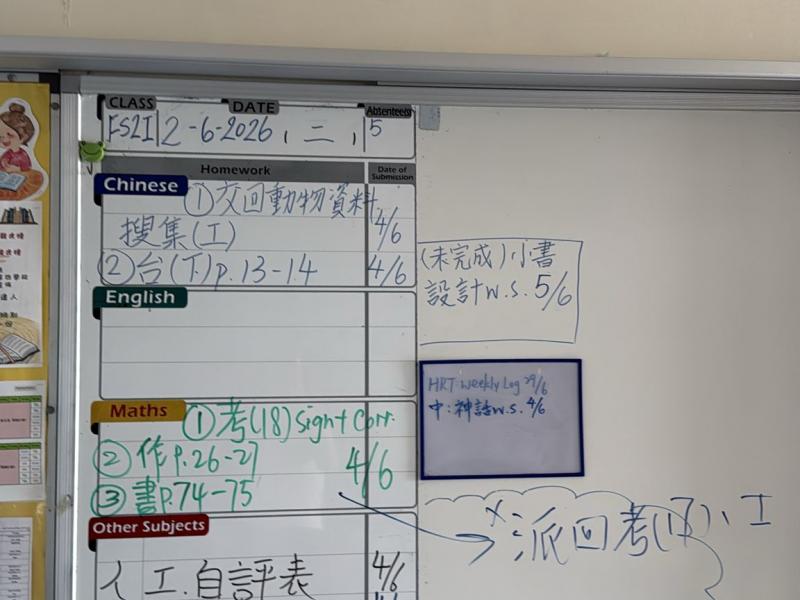 CLASS DATE Absentees
2-6-2026, 二, 5
Homework Date of Submission
Chinese ①交回動物資料
搜集(工) 4/6
②台(下)p.13-14 4/6
English
Maths ①考(18)sign+corr.
②作p.26-27 4/6
③書p.74-75
Other Subjects
人工.自評表 4/6
(未完成)小書
設計w.s. 5/6
HRT weekly Log 29/6
中:神話w.s. 4/6
派回考(17)、工